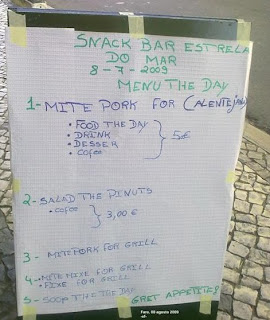 SNACK BAR ESTRELA
DO MAR
8-7-2009
MENU THE DAY
1-MITE PORK FOR (ALENTEJANA
• FOOD THE DAY
• DRINK
• DESSER
• COFOO
5€
2-SALAD THE PINUTS
• COFOO
3,00 €
3 - MITE PORK FOR GRILL
4-• MITE MIXE FOR GRILL
• FIXE FOR GRILL
5- SOUP THE THE DAY
GRET APPETITES
Faro, 09 agosto 2009